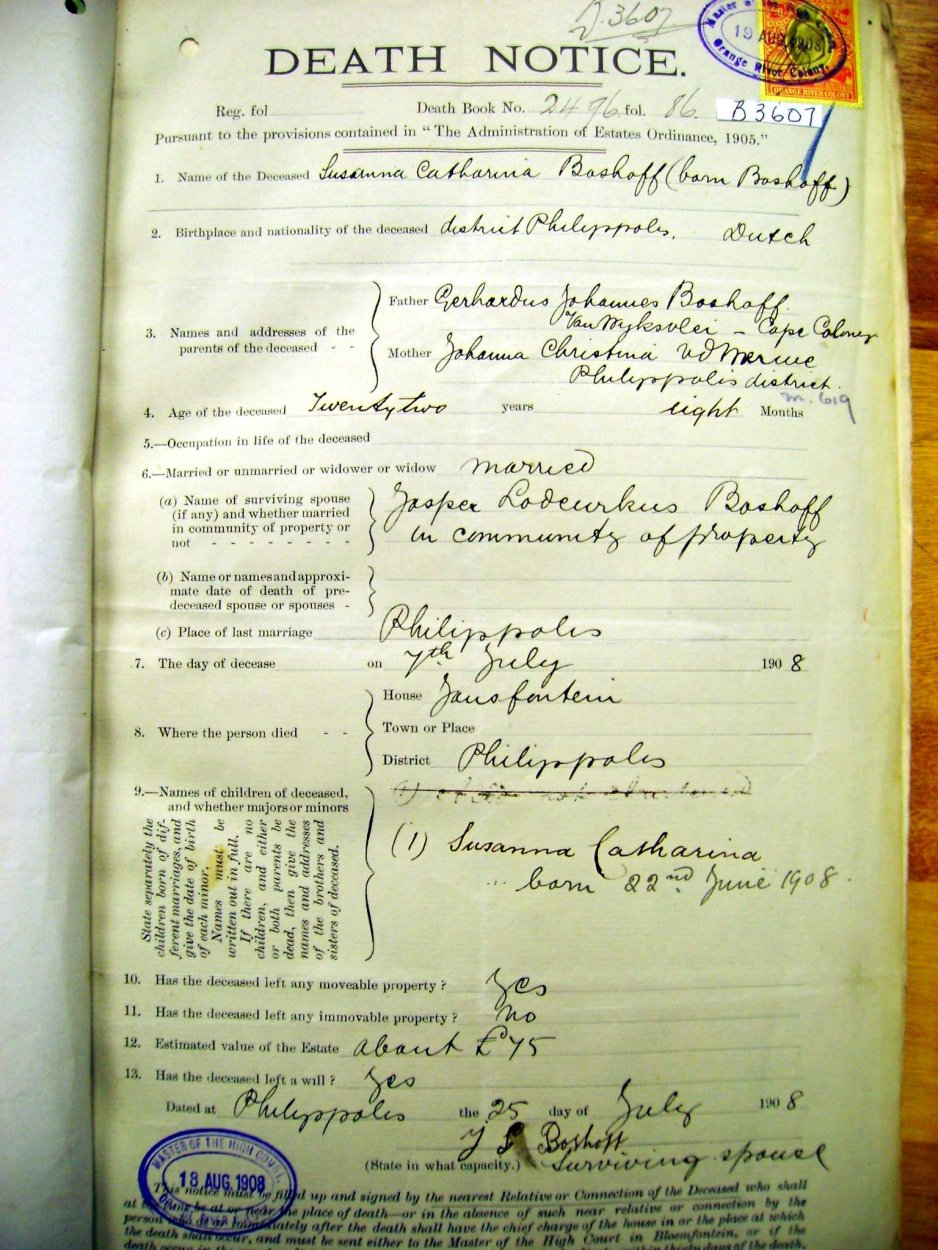 B.3607.
Master of the High Court
19 AUG 1908
Orange River Colony
ORANGE RIVER COLONY
DEATH NOTICE.
Reg. fol Death Book No. 2476 fol. 86. B3607
Pursuant to the provisions contained in "The Administration of Estates Ordinance, 1905."
1. Name of the Deceased Susanna Catharina Boshoff (born Boshoff)
2. Birthplace and nationality of the deceased district Philippolis. Dutch
3. Names and addresses of the parents of the deceased - -
Father Gerhardus Johannes Boshoff
Van Wyksvlei - Cape Colony
Mother Johanna Christina vd Merwe
Philippolis district.
m. 619
4. Age of the deceased Twenty two years eight Months
5.—Occupation in life of the deceased
6.—Married or unmarried or widower or widow married
(a) Name of surviving spouse
(if any) and whether married
in community of property or
not - - - - - - - -
Jasper Lodewikus Boshoff
in community of property
(b) Name or names and approxi-
mate date of death of pre-
deceased spouse or spouses -
(c) Place of last marriage Philippolis
7. The day of decease on 7th July 1908
8. Where the person died - -
House Jansfontein
Town or Place
District Philippolis
9.—Names of children of deceased,
and whether majors or minors
State separately the
children born of dif-
ferent marriages, and
give the date of birth
of each minor.
Names must be
written out in full.
If there are no
children, and either
or both parents be
dead, then give the
names and addresses
of the brothers and
sisters of deceased.
(1) Susanna Catharina
born 22nd June 1908.
10. Has the deceased left any moveable property? Yes
11. Has the deceased left any immovable property? no
12. Estimated value of the Estate about £75
13. Has the deceased left a will? Yes
Dated at Philippolis the 25 day of July 1908
J L Boshoff
(State in what capacity.) Surviving spouse
MASTER OF THE HIGH COURT,
18 AUG. 1908
This notice must be filled up and signed by the nearest Relative or Connection of the Deceased who shall
at the time be at or near the place of death—or in the absence of such near relative or connection by the
person who immediately after the death shall have the chief charge of the house in or the place at which
the death shall occur, and must be sent either to the Master of the High Court in Bloemfontein, or if the